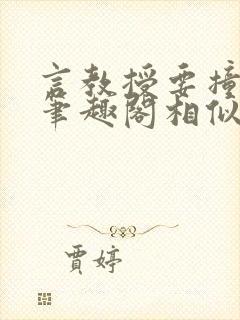 言教授要撞
笔趣阁相似
贾婷